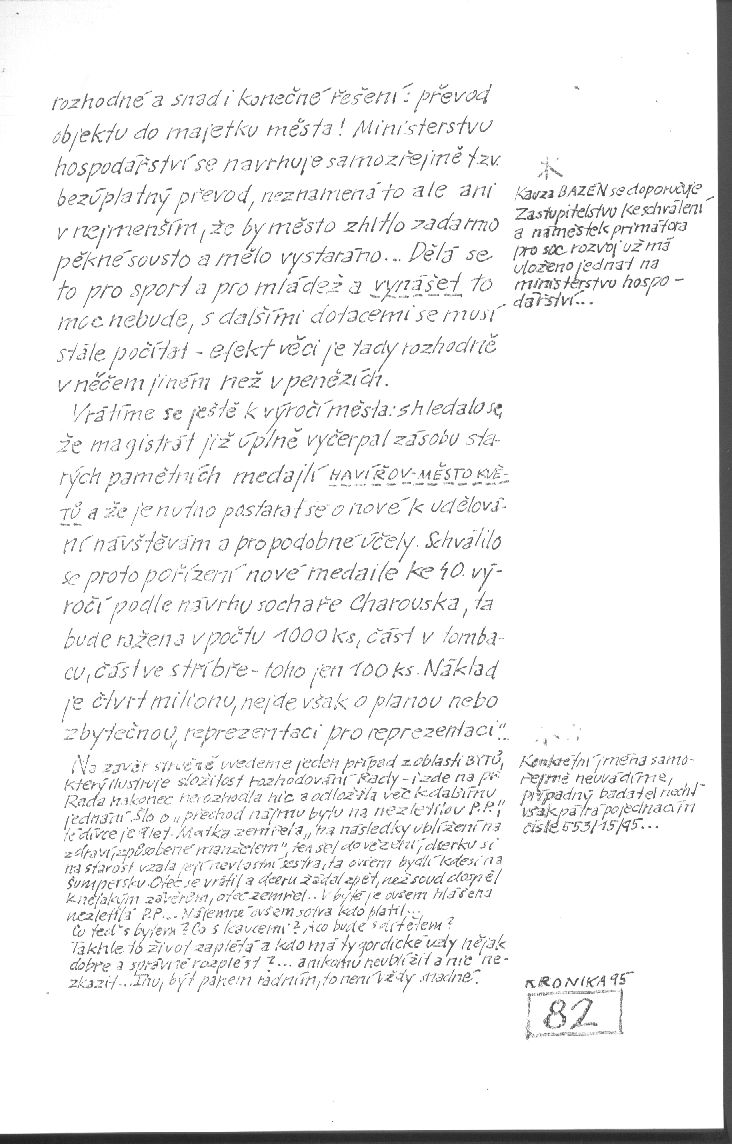 rozhodné a snad i konečné řešení: převod
objektu do majetku města! Ministerstvu
hospodářství se navrhuje samozřejmě tzv.
bezúplatný převod, neznamená to ale ani
v nejmenším, že by město zhltlo zadarmo
pěkné sousto a mělo vystaráno... Dělá se
to pro sport a pro mládež a vynášet to
moc nebude, s dalšími dotacemi se musí
stále počítat - efekt věci je tady rozhodně
v něčem jiném než v penězích.
Vrátíme se ještě k výročí města: shledalo se,
že magistrát již úplně vyčerpal zásobu sta-
rých pamětních medajlí HAVÍŘOV-MĚSTO KVĚ-
TŮ a že je nutno postarat se o nové k udělová-
ní návštěvám a pro podobné účely. Schválilo
se proto pořízení nové medaile ke 40. vý-
ročí podle návrhu sochaře Charouska, ta
bude ražena v počtu 1000 ks, část v tomba-
cu, část ve stříbře - toho jen 100 ks. Náklad
je čtvrt milionu, nejde však o planou nebo
zbytečnou „reprezentaci pro reprezentaci“.
Na závěr stručně uvedeme jeden případ z oblasti BYTŮ,
který ilustruje složitost rozhodování Rady - i zde na př.
Rada nakonec nerozhodla nic a odložila věc k dalšímu
jednání. Šlo o „přechod nájmu bytu na nezletilou P.P.“,
té dívce je 9 let. Matka zemřela „na následky ublížení na
zdraví, způsobené manželem“, ten šel do vězení, dcerku si
na starost vzala její nevlastní sestra, ta ovšem bydlí kdesi na
Šumpersku. Otec se vrátil a dceru žádal zpět, než soud dospěl
k nějakým závěrům, otec zemřel... V bytě je ovšem hlášena
nezletilá P.P.... Nájemné ovšem sotva kdo platil...
Co teď s bytem? Co s kaucemi? A co bude s dítětem?
Takhle to život zaplétá a kdo má ty gordické uzly nějak
dobře a správně rozplést?... a nikomu neublížit a nic ne-
zkazit... Inu, být pánem radním, to není vždy snadné.
Kauza BAZÉN se doporučuje
Zastupitelstvu ke schválení
a náměstek primátora
pro soc. rozvoj už má
uloženo jednat na
ministerstvu hospo-
dářství...
Konkrétní jména samo-
zřejmě neuvádíme,
případný badatel nechť
však pátrá po jednacím
čísle 553/15/95...
KRONIKA 95
82